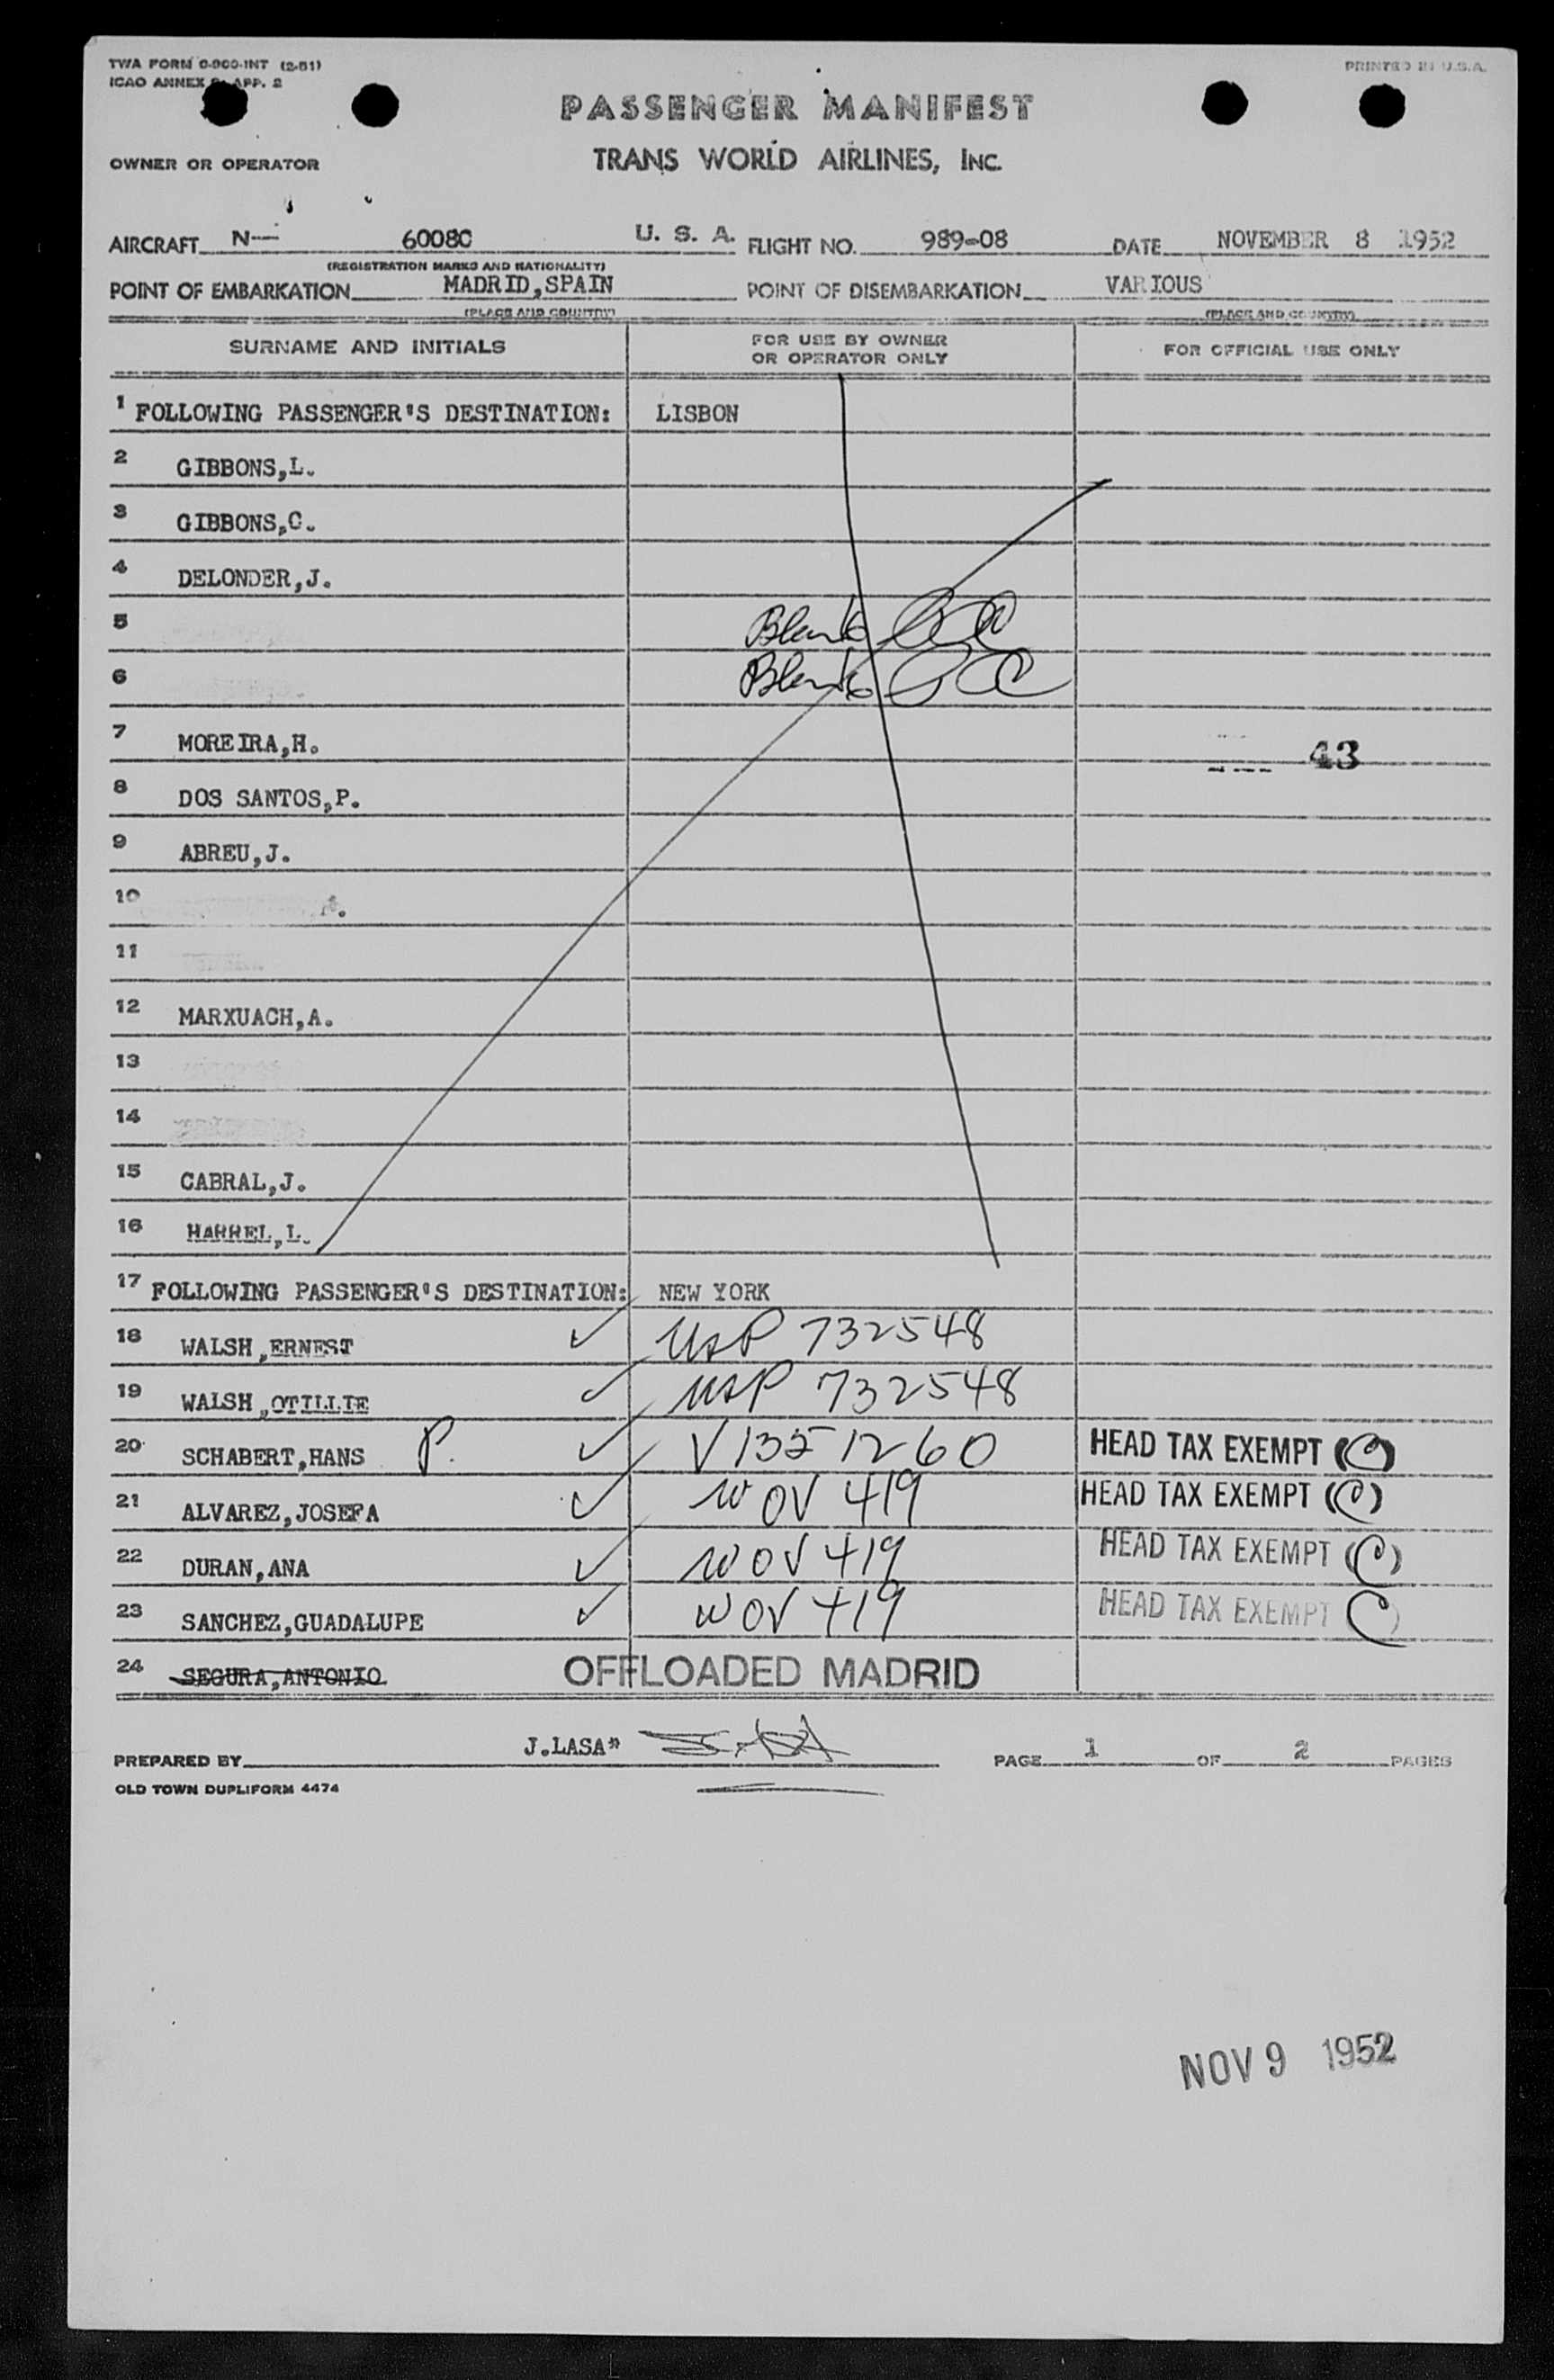 TWA FORM 0-900-INT (2-51)
ICAO ANNEX 9 APP. 2
PRINTED IN U.S.A.
PASSENGER MANIFEST
OWNER OR OPERATOR
TRANS WORLD AIRLINES, INC.
AIRCRAFT N— 6008C U. S. A. FLIGHT NO. 989-08 DATE NOVEMBER 8 1952
(REGISTRATION MARKS AND NATIONALITY)
POINT OF EMBARKATION MADRID,SPAIN POINT OF DISEMBARKATION VARIOUS
(PLACE AND COUNTRY) (PLACE AND COUNTRY)
SURNAME AND INITIALS FOR USE BY OWNER OR OPERATOR ONLY FOR OFFICIAL USE ONLY
1 FOLLOWING PASSENGER'S DESTINATION: LISBON
2 GIBBONS,L.
3 GIBBONS,C.
4 DELONDER,J.
5 Blank
6 Blank
7 MOREIRA,H. 43
8 DOS SANTOS,P.
9 ABREU,J.
10
11
12 MARXUACH,A.
13
14
15 CABRAL,J.
16 HARREL,L.
17 FOLLOWING PASSENGER'S DESTINATION: NEW YORK
18 WALSH,ERNEST ✓ USP 732548
19 WALSH,OTILLIE ✓ USP 732548
20 SCHABERT,HANS P. ✓ V1351260 HEAD TAX EXEMPT (C)
21 ALVAREZ,JOSEFA ✓ WOV 419 HEAD TAX EXEMPT (C)
22 DURAN,ANA ✓ WOV 419 HEAD TAX EXEMPT (C)
23 SANCHEZ,GUADALUPE ✓ WOV 419 HEAD TAX EXEMPT (C)
24 SEGURA,ANTONIO OFFLOADED MADRID
PREPARED BY J.LASA" PAGE 1 OF 2 PAGES
OLD TOWN DUPLIFORM 4474
NOV 9 1952